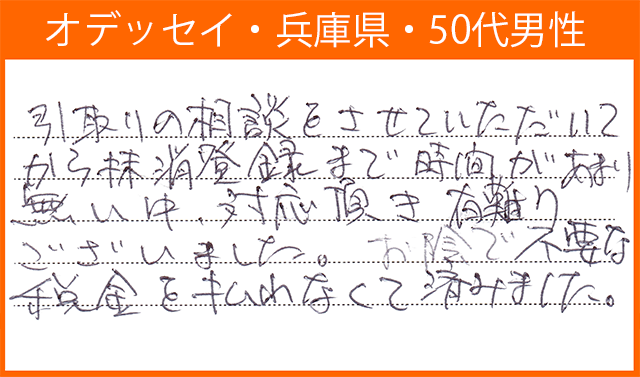 オデッセイ・兵庫県・50代男性
引取りの相談をさせていただいて
から抹消登録まで時間があまり
無い中、対応頂き有難う
ございました。お陰で不要な
税金を払わなくて済みました。